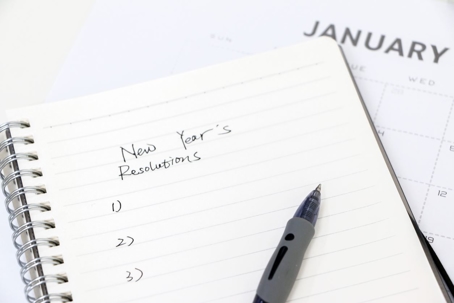 JANUARY
SUN
WED
New Year's
Resolutions
1)
2)
3)